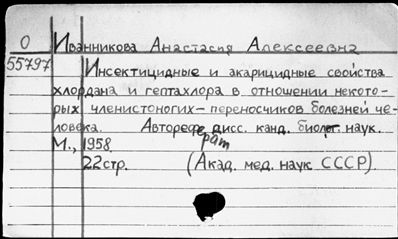 О Иванникова Анастасия Алексеевна
55797 Инсектицидные и акарицидные свойства
хлордана и гептахлора в отношении некото-
рых членистоногих - переносчиков болезней че-
ловека. Автореферат дисс. канд. биолог. наук.
М., 1958.
22 стр. (Акад. мед. наук СССР)